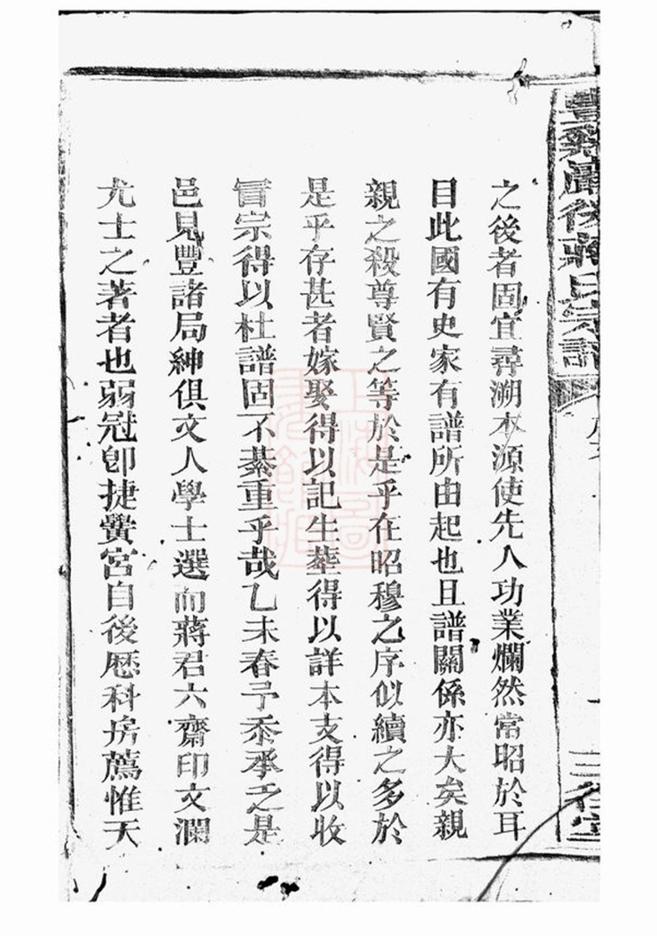 之後者固宜尋溯本源使先人功業爛然常昭於耳
目此國有史家有譜所由起也且譜關係亦大矣親
親之殺尊賢之等於是乎在昭穆之序似續之多於
是乎存甚者嫁娶得以記生塟得以詳本支得以收
冐宗得以杜譜固不綦重乎哉乙未春予忝承乏是
邑見豐諸局紳俱文人學士選而蔣君六齋印文瀾
尤士之著者也弱冠卽捷黌宮自後歷科房薦惟天
蔣氏宗譜
三徑堂